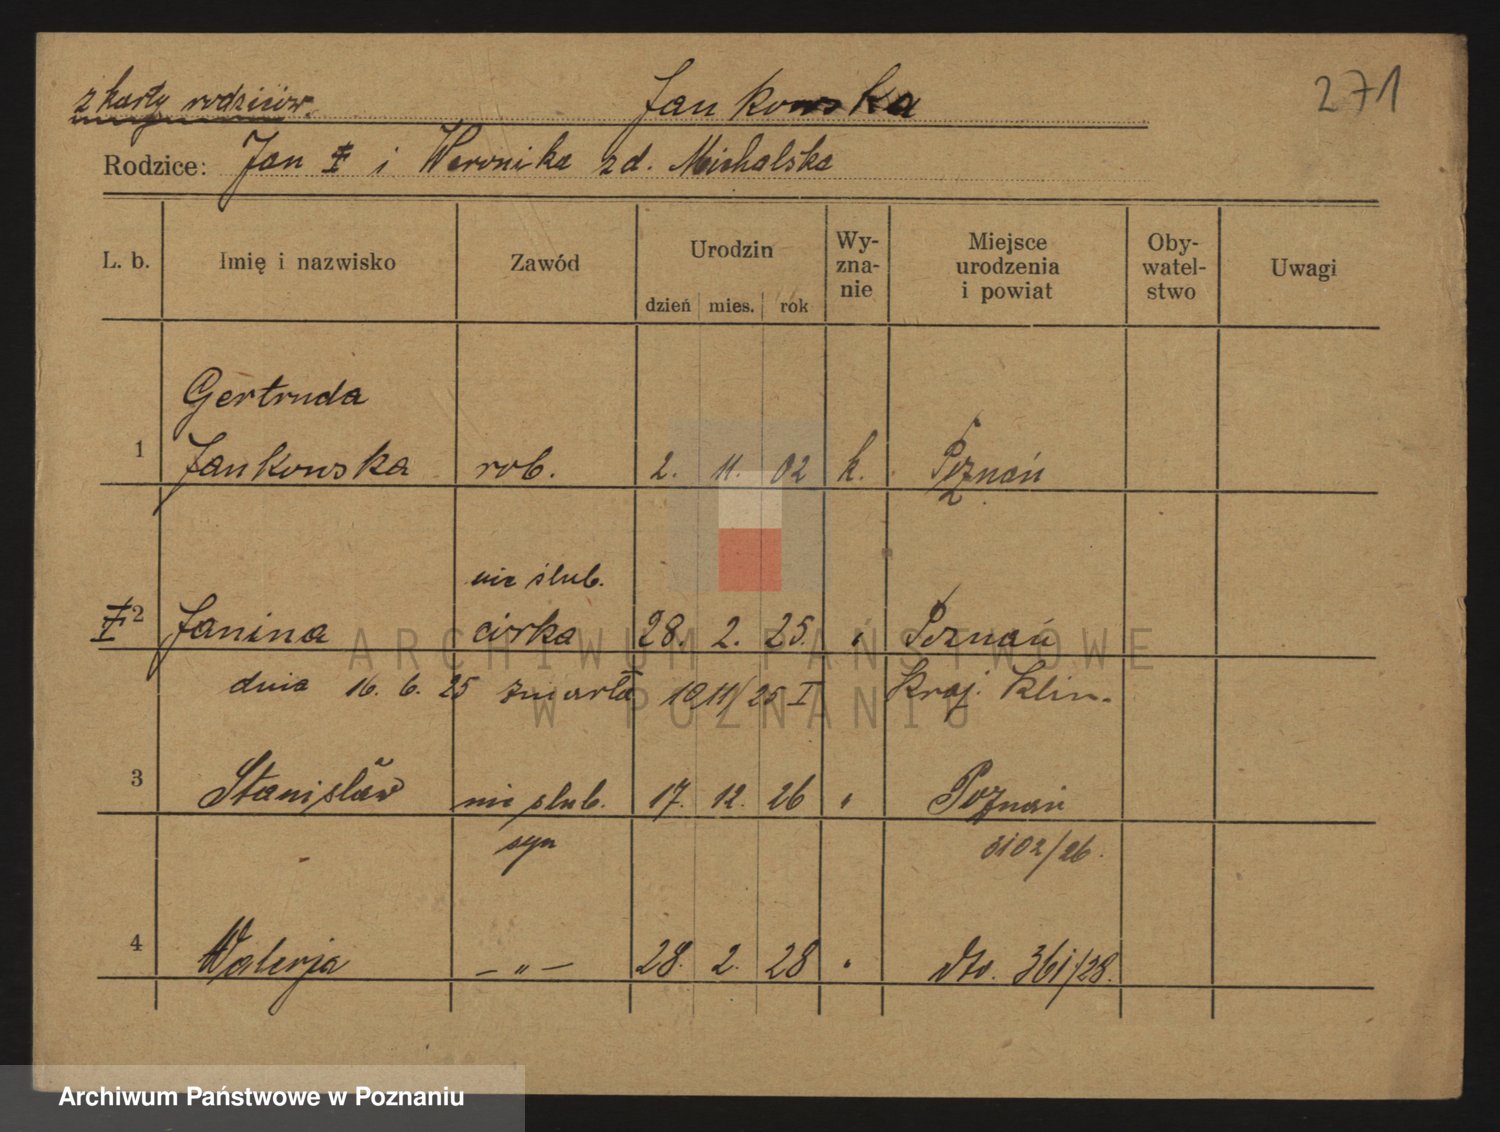 z karty rodziców. Jankowska 271
Rodzice: Jan i Weronika zd. Michalska
L. b. Imię i nazwisko Zawód Urodzin Wy-zna-nie Miejsce urodzenia i powiat Oby-watel-stwo Uwagi
dzień mies. rok
Gertruda
1 Jankowska rob. 2. 11. 02 k. Poznań
nie ślub.
2 Janina córka 28. 2. 25. " Poznań
dnia 16. 6. 25 zmarła 1911/25 I Kraj. Klin.
3 Stanisław nie ślub. 17. 12. 26 " Poznań
syn 3102/26.
4 Walerja — " — 28. 2. 28 " dto. 361/28.
ARCHIWUM PAŃSTWOWE
W POZNANIU
Archiwum Państwowe w Poznaniu